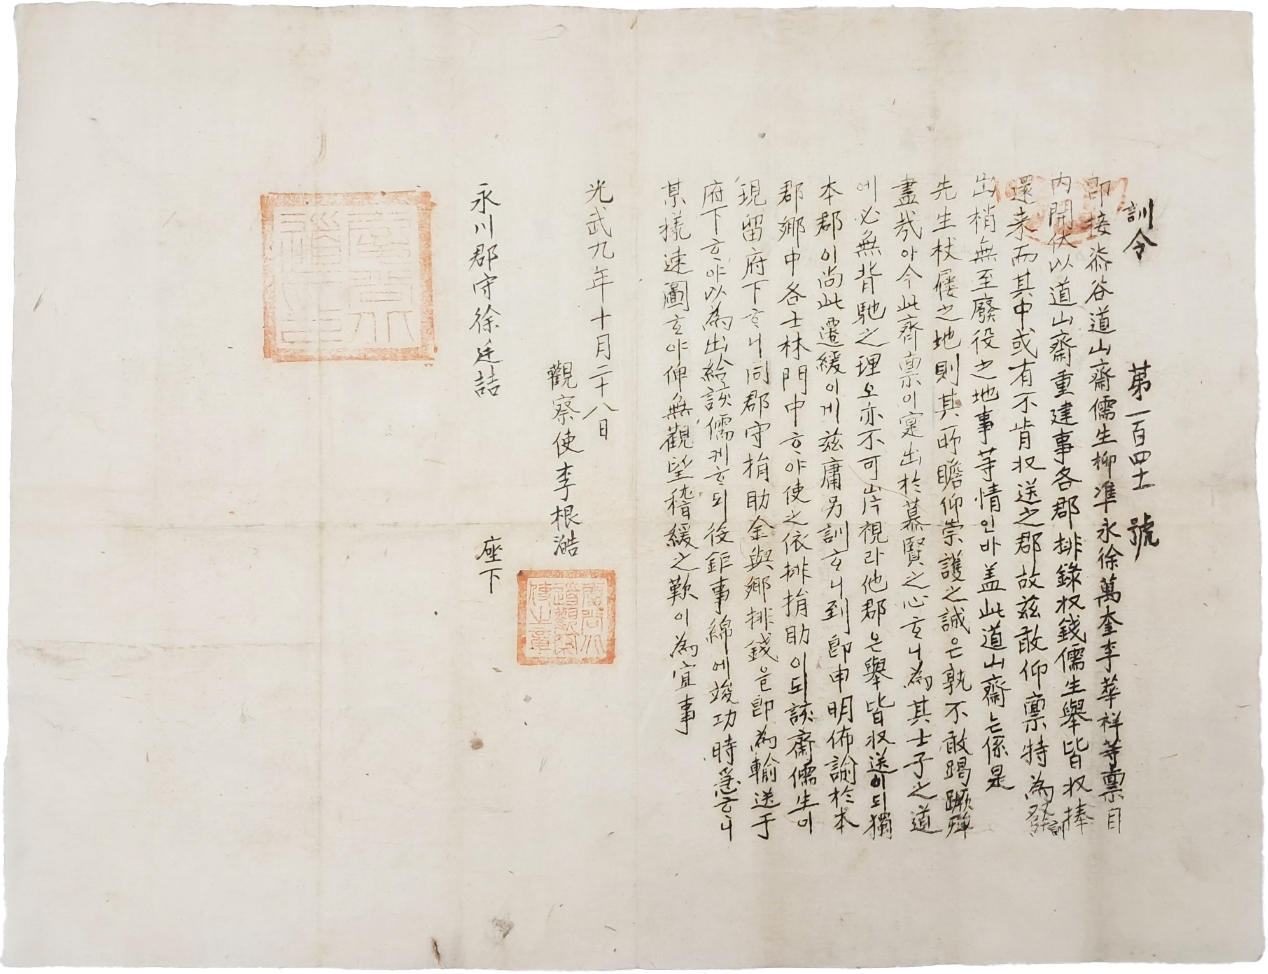 訓令 第一百四十 號
卽接漆谷道山齋儒生柳準永徐萬奎李華祥等稟目
內開伏以道山齋重建事各郡排錄收錢儒生擧皆收捧
還来而其中或有不肯收送之郡故玆敢仰稟特為發訓
出梢無至廢役之地事等情인바盖此道山齋는係是
先生杖屨之地則其所瞻仰崇護之誠은孰不敢竭蹶殫
盡哉아今此齋稟이寔出於慕賢之心하니為其士子之道
에必無背馳之理오亦不可岸視라他郡은擧皆收送이되獨
本郡이尙此遷緩이게玆庸另訓하니到卽申明佈諭於本
郡鄕中各士林門中하야使之依排捐助이되該齋儒生이
現留府下하니同郡守捐助金與鄕排錢을卽為輸送于
府下하야以為出給該儒케하되役鉅事綿에竣功時急하니
某㨾速圖하야俾無觀望稽緩之歎이為宜事
光武九年十月二十八日
觀察使李根澔
永川郡守徐廷喆 座下
慶尙北道觀察使之章